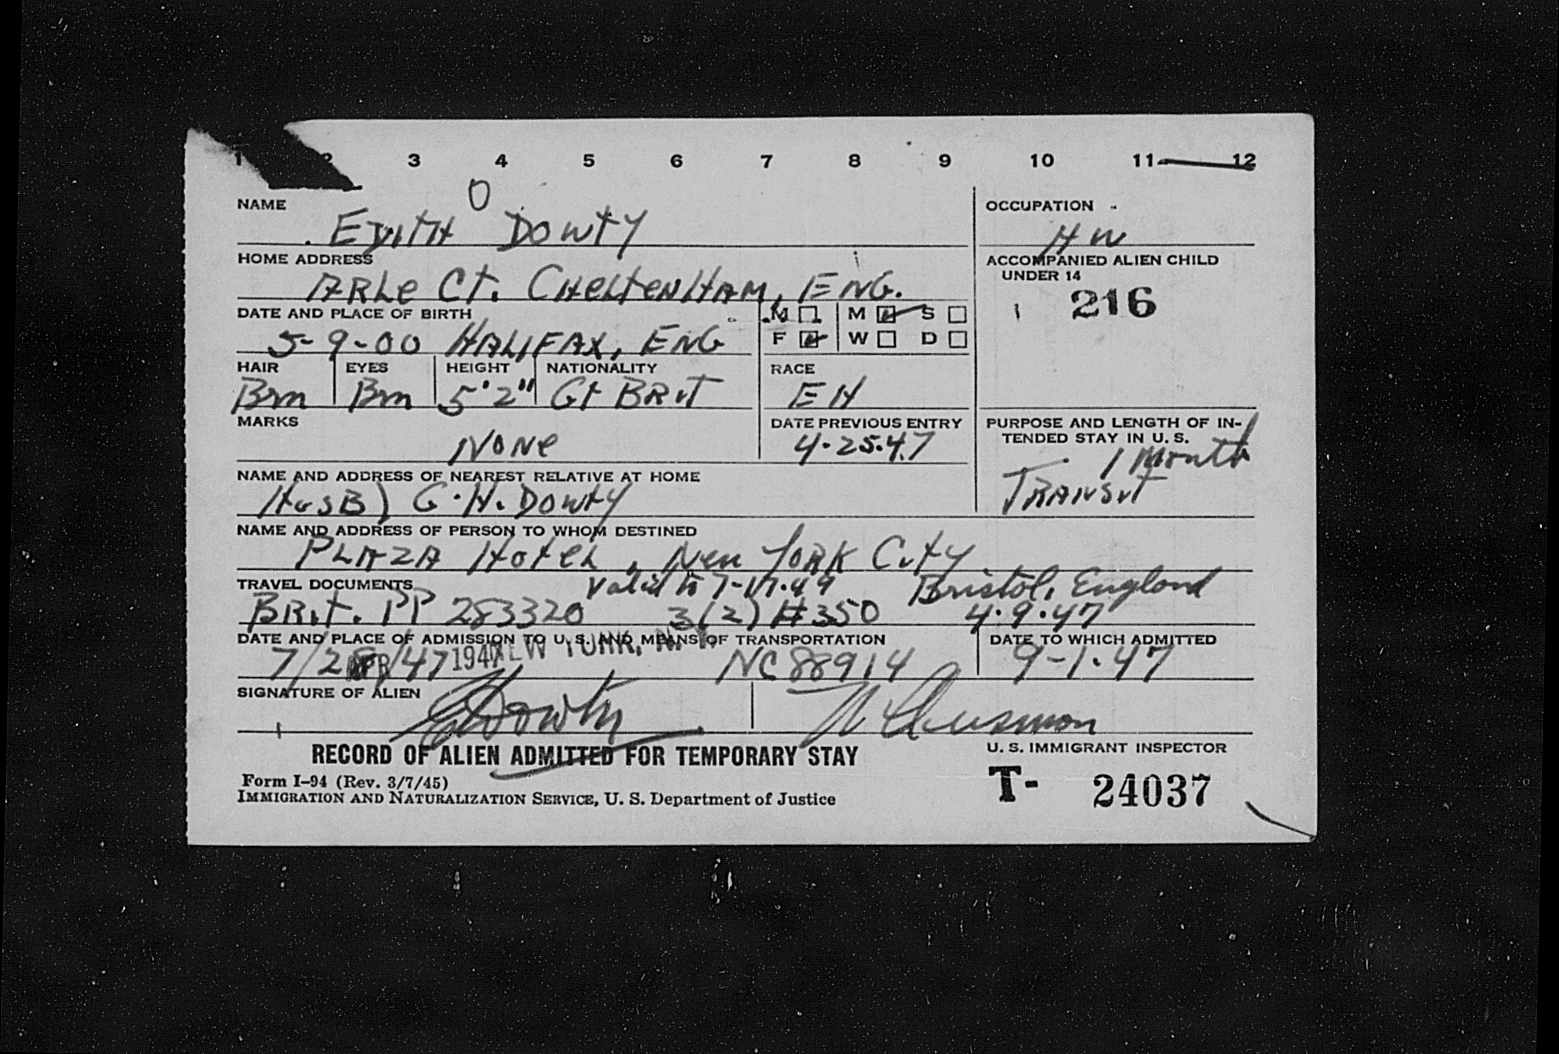 1 2 3 4 5 6 7 8 9 10 11 12
O
NAME OCCUPATION
EDITH DOWTY HW
HOME ADDRESS ACCOMPANIED ALIEN CHILD UNDER 14
ARLE CT. CHELTENHAM, ENG. 216
DATE AND PLACE OF BIRTH M M S
5-9-00 HALIFAX, ENG F W D
HAIR EYES HEIGHT NATIONALITY RACE
Brn Brn 5'2" Gt BRIT EH
MARKS DATE PREVIOUS ENTRY PURPOSE AND LENGTH OF IN-
TENDED STAY IN U. S.
NONE 4-25-47 1 Month
TRANSIT
NAME AND ADDRESS OF NEAREST RELATIVE AT HOME
HUSB) G. H. DOWTY
NAME AND ADDRESS OF PERSON TO WHOM DESTINED
PLAZA HOTEL, New YORK CITY
TRAVEL DOCUMENTS Valid to 7-17-49 Bristol, England
BRIT. PP 283320 3(2) #350 4-9-47
DATE AND PLACE OF ADMISSION TO U. S. AND MEANS OF TRANSPORTATION DATE TO WHICH ADMITTED
7/28/47 APR 1947 NEW YORK, N.Y. NC 88914 9-1-47
SIGNATURE OF ALIEN
E Dowty
RECORD OF ALIEN ADMITTED FOR TEMPORARY STAY U. S. IMMIGRANT INSPECTOR
Form I-94 (Rev. 3/7/45)
IMMIGRATION AND NATURALIZATION SERVICE, U. S. Department of Justice T- 24037